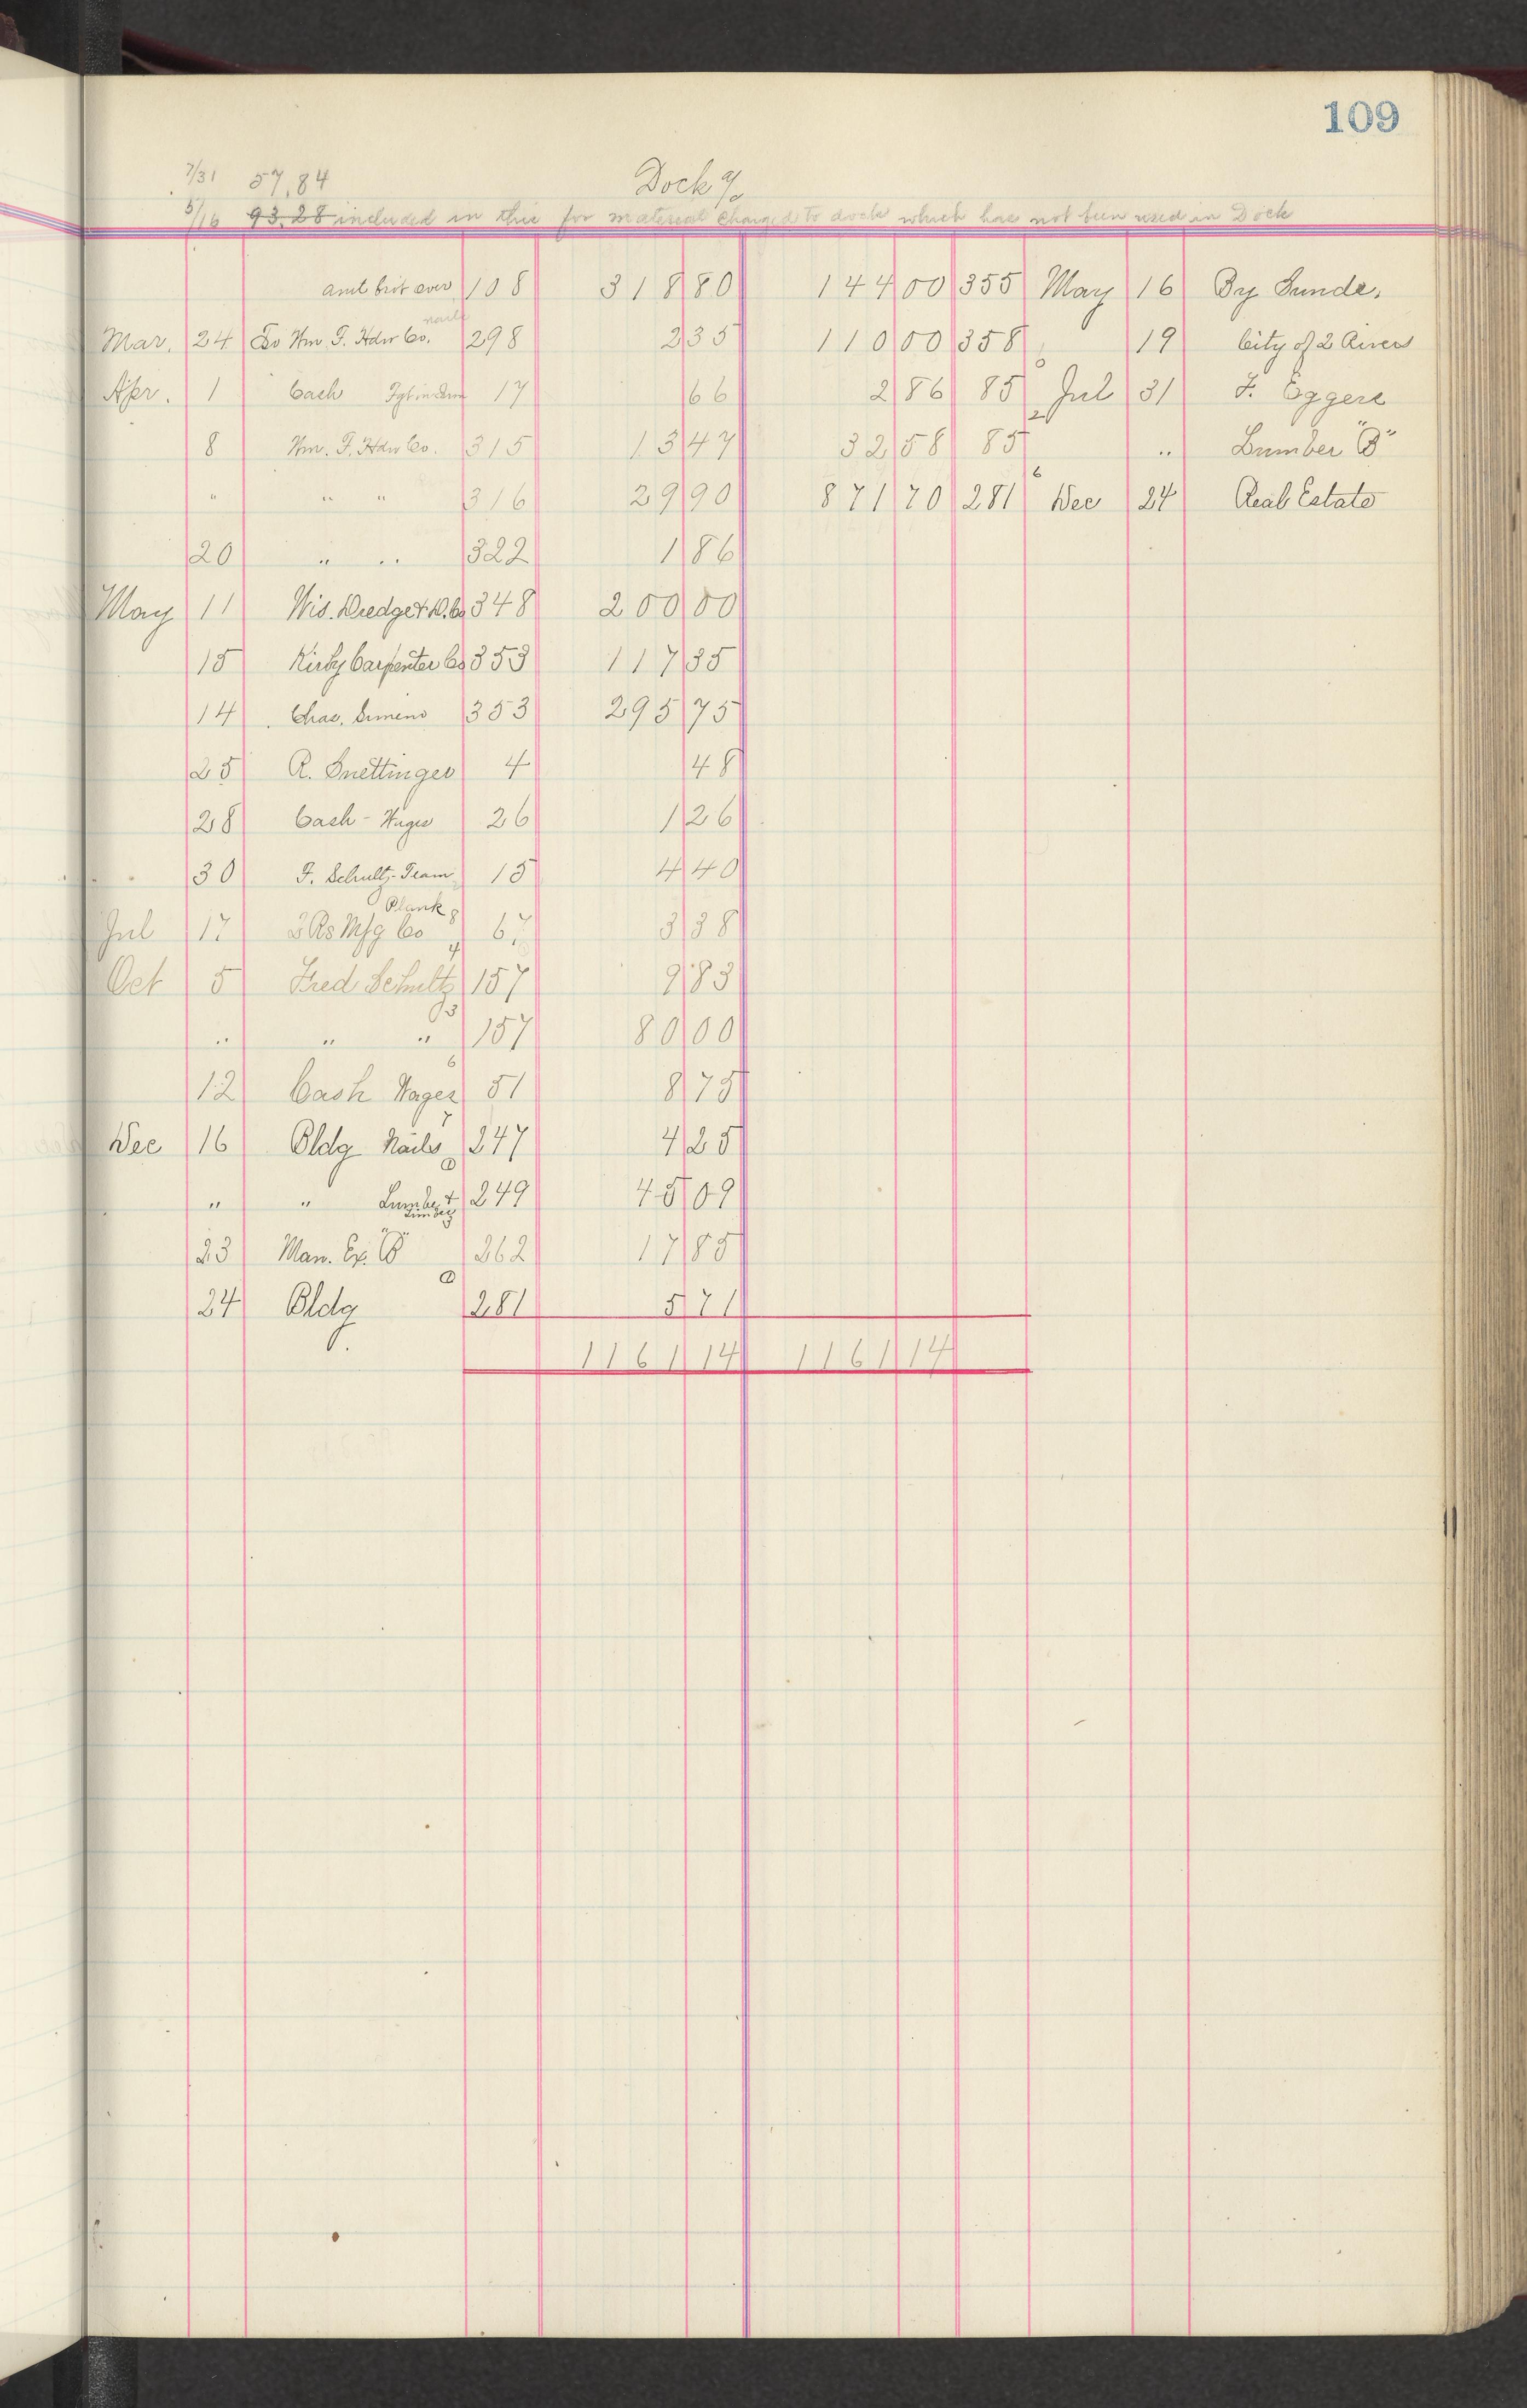 109
7/31 57.84 Dock a/c
5/16 93.28 included in this for material charged to dock which has not been used in Dock
amt brot over 108 318 80 144 00 355 May 16 By Sunds.
nails
Mar. 24 To Wm. F. Hdw Co. 298 2 35 110 00 358 19 City of 2 Rivers
Apr. 1 Cash 17 66 2 86 85 Jul 31 F. Eggers
8 Wm. F. Hdw Co. 315 13 47 32 58 85 " Lumber "B"
" " " 316 29 90 871 70 281 Dec 24 Real Estate
20 " " 322 1 86
May 11 Wis. Dredge & D. Co 348 200 00
15 Kirby Carpenter Co 353 117 35
14 Chas. 353 295 75
25 R. 4 48
28 Cash - Wages 26 1 26
30 F. Schultz - Team 15 4 40
Plank
Jul 17 2 Rs Mfg Co 67 3 38
Oct 5 Fred Schultz 157 9 83
" " " 157 80 00
12 Cash Wages 51 8 75
Dec 16 Bldg Nails 247 4 25
" " Lumber & Timber 249 45 09
23 Man. Ex. "B" 262 17 85
24 Bldg 281 5 71
1161 14 1161 14